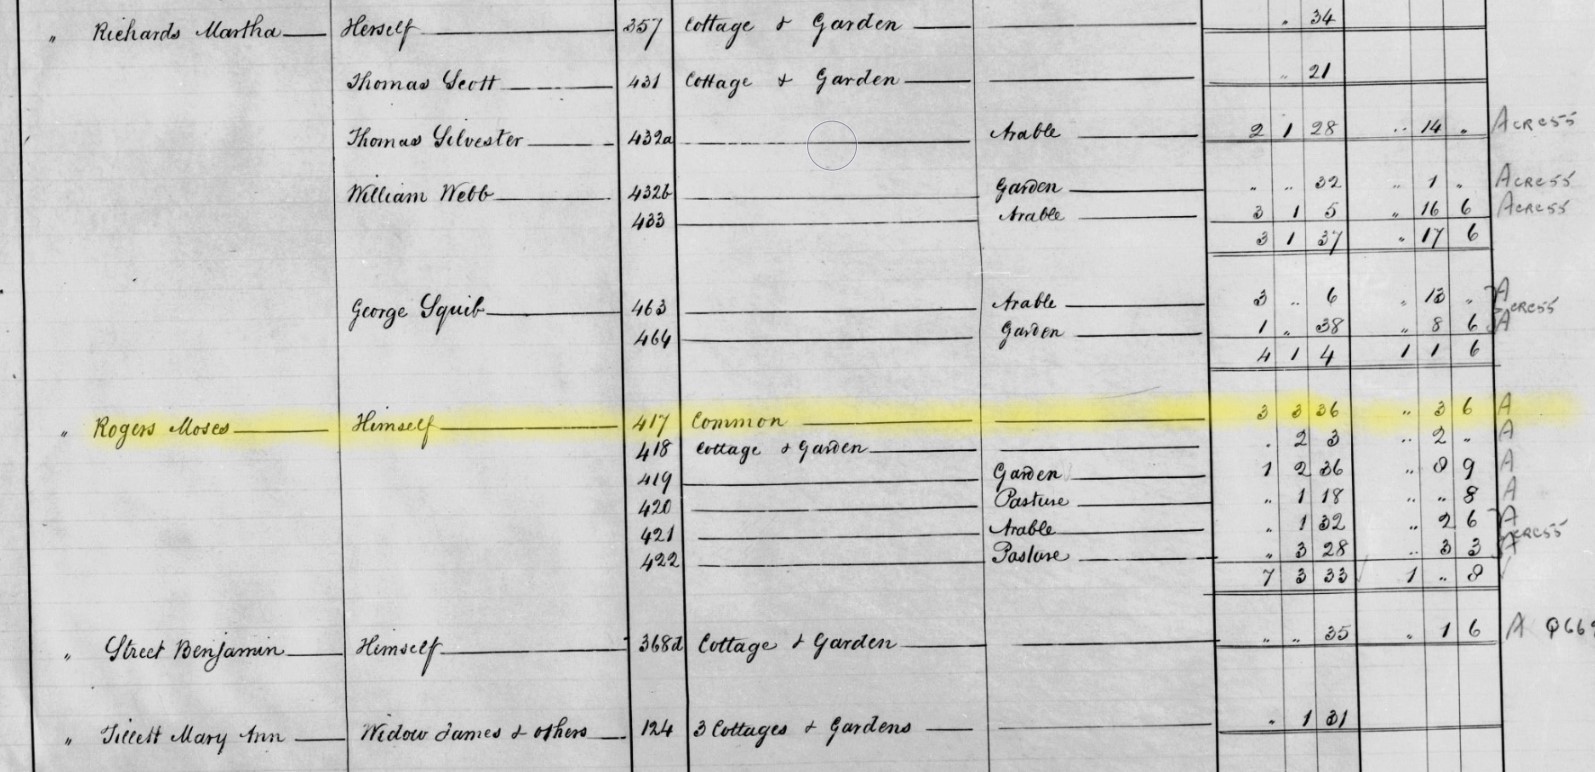 " Richards Martha Herself 357 Cottage & Garden . 34
Thomas Scott 431 Cottage & Garden " 21
Thomas Silvester 432a Arable 2 1 28 .. 14 . Acre55
William Webb 432b Garden " .. 32 " 1 " Acre55
433 Arable 3 1 5 " 16 6 Acre55
3 1 37 " 17 6
George Squib 463 Arable 3 .. 6 " 13 " A
Acre55
464 Garden 1 " 38 " 8 6 A
4 1 4 1 1 6
" Rogers Moses Himself 417 Common 3 3 36 .. 3 6 A
418 Cottage & Garden . 2 3 .. 2 " A
419 Garden 1 2 36 .. 8 9 A
420 Pasture " 1 18 .. " 8 A
421 Arable " 1 32 .. 2 6 A
Acre55
422 Pasture " 3 28 .. 3 3 A
7 3 33 1 .. 8
" Street Benjamin Himself 368d Cottage & Garden " .. 35 " 1 6 A
" Tillett Mary Ann Widow James & others 124 3 Cottages & Gardens . 1 31